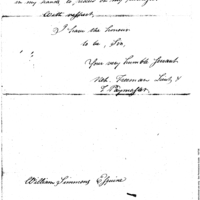 in my hands to
With respect,
I have the honour
to be, Sir,
Your very humble Servant
Nath. Freeman Lieut. &
Paymaster
William Simmons Esquire